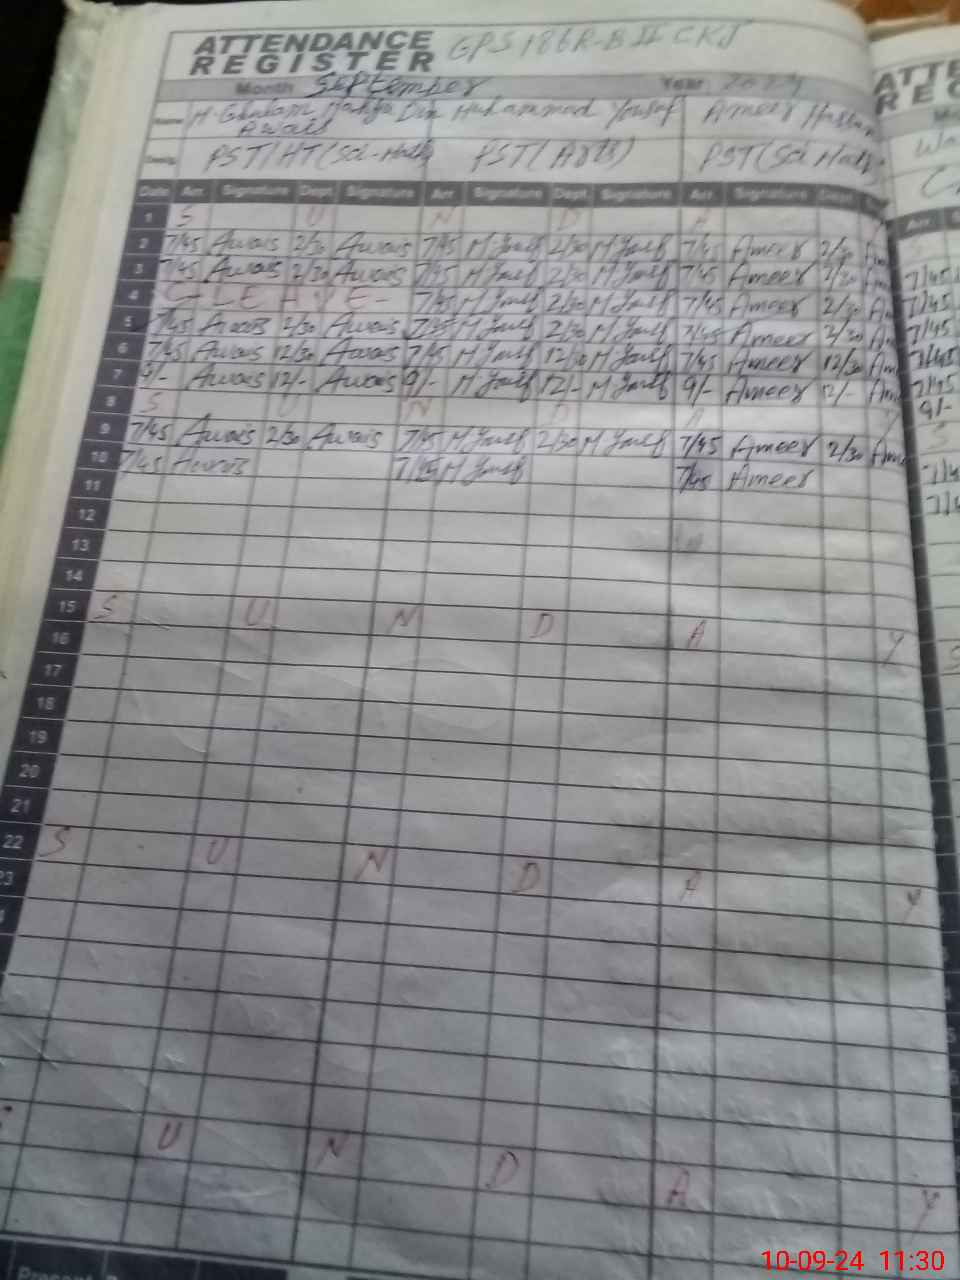 ATTENDANCE REGISTER GPS 186R-B II CKJ
Month September Year 2024
Name M. Ghulam Awais Muhammad Yousaf Ameer
Desig. PST/HT(Sci-Math) PST(Arts) PST(Sci Math)
Date Arr. Signature Dept. Signature Arr. Signature Dept. Signature Arr. Signature Dept.
1 S U N D A
2 7/45 Awais 2/30 Awais 7/45 M Yousf 2/30 M Yousf 7/45 Ameer 2/30 Am
3 7/45 Awais 2/30 Awais 7/45 M Yousf 2/30 M Yousf 7/45 Ameer 2/30 Am 7/45
4 C-LEAVE- 7/45 M Yousf 2/30 M Yousf 7/45 Ameer 2/30 Am 7/45
5 7/45 Awais 2/30 Awais 7/45 M Yousf 2/30 M Yousf 7/45 Ameer 2/30 Am 7/45
6 7/45 Awais 12/30 Awais 7/45 M Yousf 12/30 M Yousf 7/45 Ameer 12/30 Am 7/45
7 9/- Awais 12/- Awais 9/- M Yousf 12/- M Yousf 9/- Ameer 12/- Am 9/-
8 S U N D A Y
9 7/45 Awais 2/30 Awais 7/45 M Yousf 2/30 M Yousf 7/45 Ameer 2/30 Am
10 7/45 Awais 7/45 M Yousf 7/45 Ameer
11
12
13
14
15 S U N D A Y
16
17
18
19
20
21
22 S U N D A Y
23
U N D A Y
10-09-24 11:30